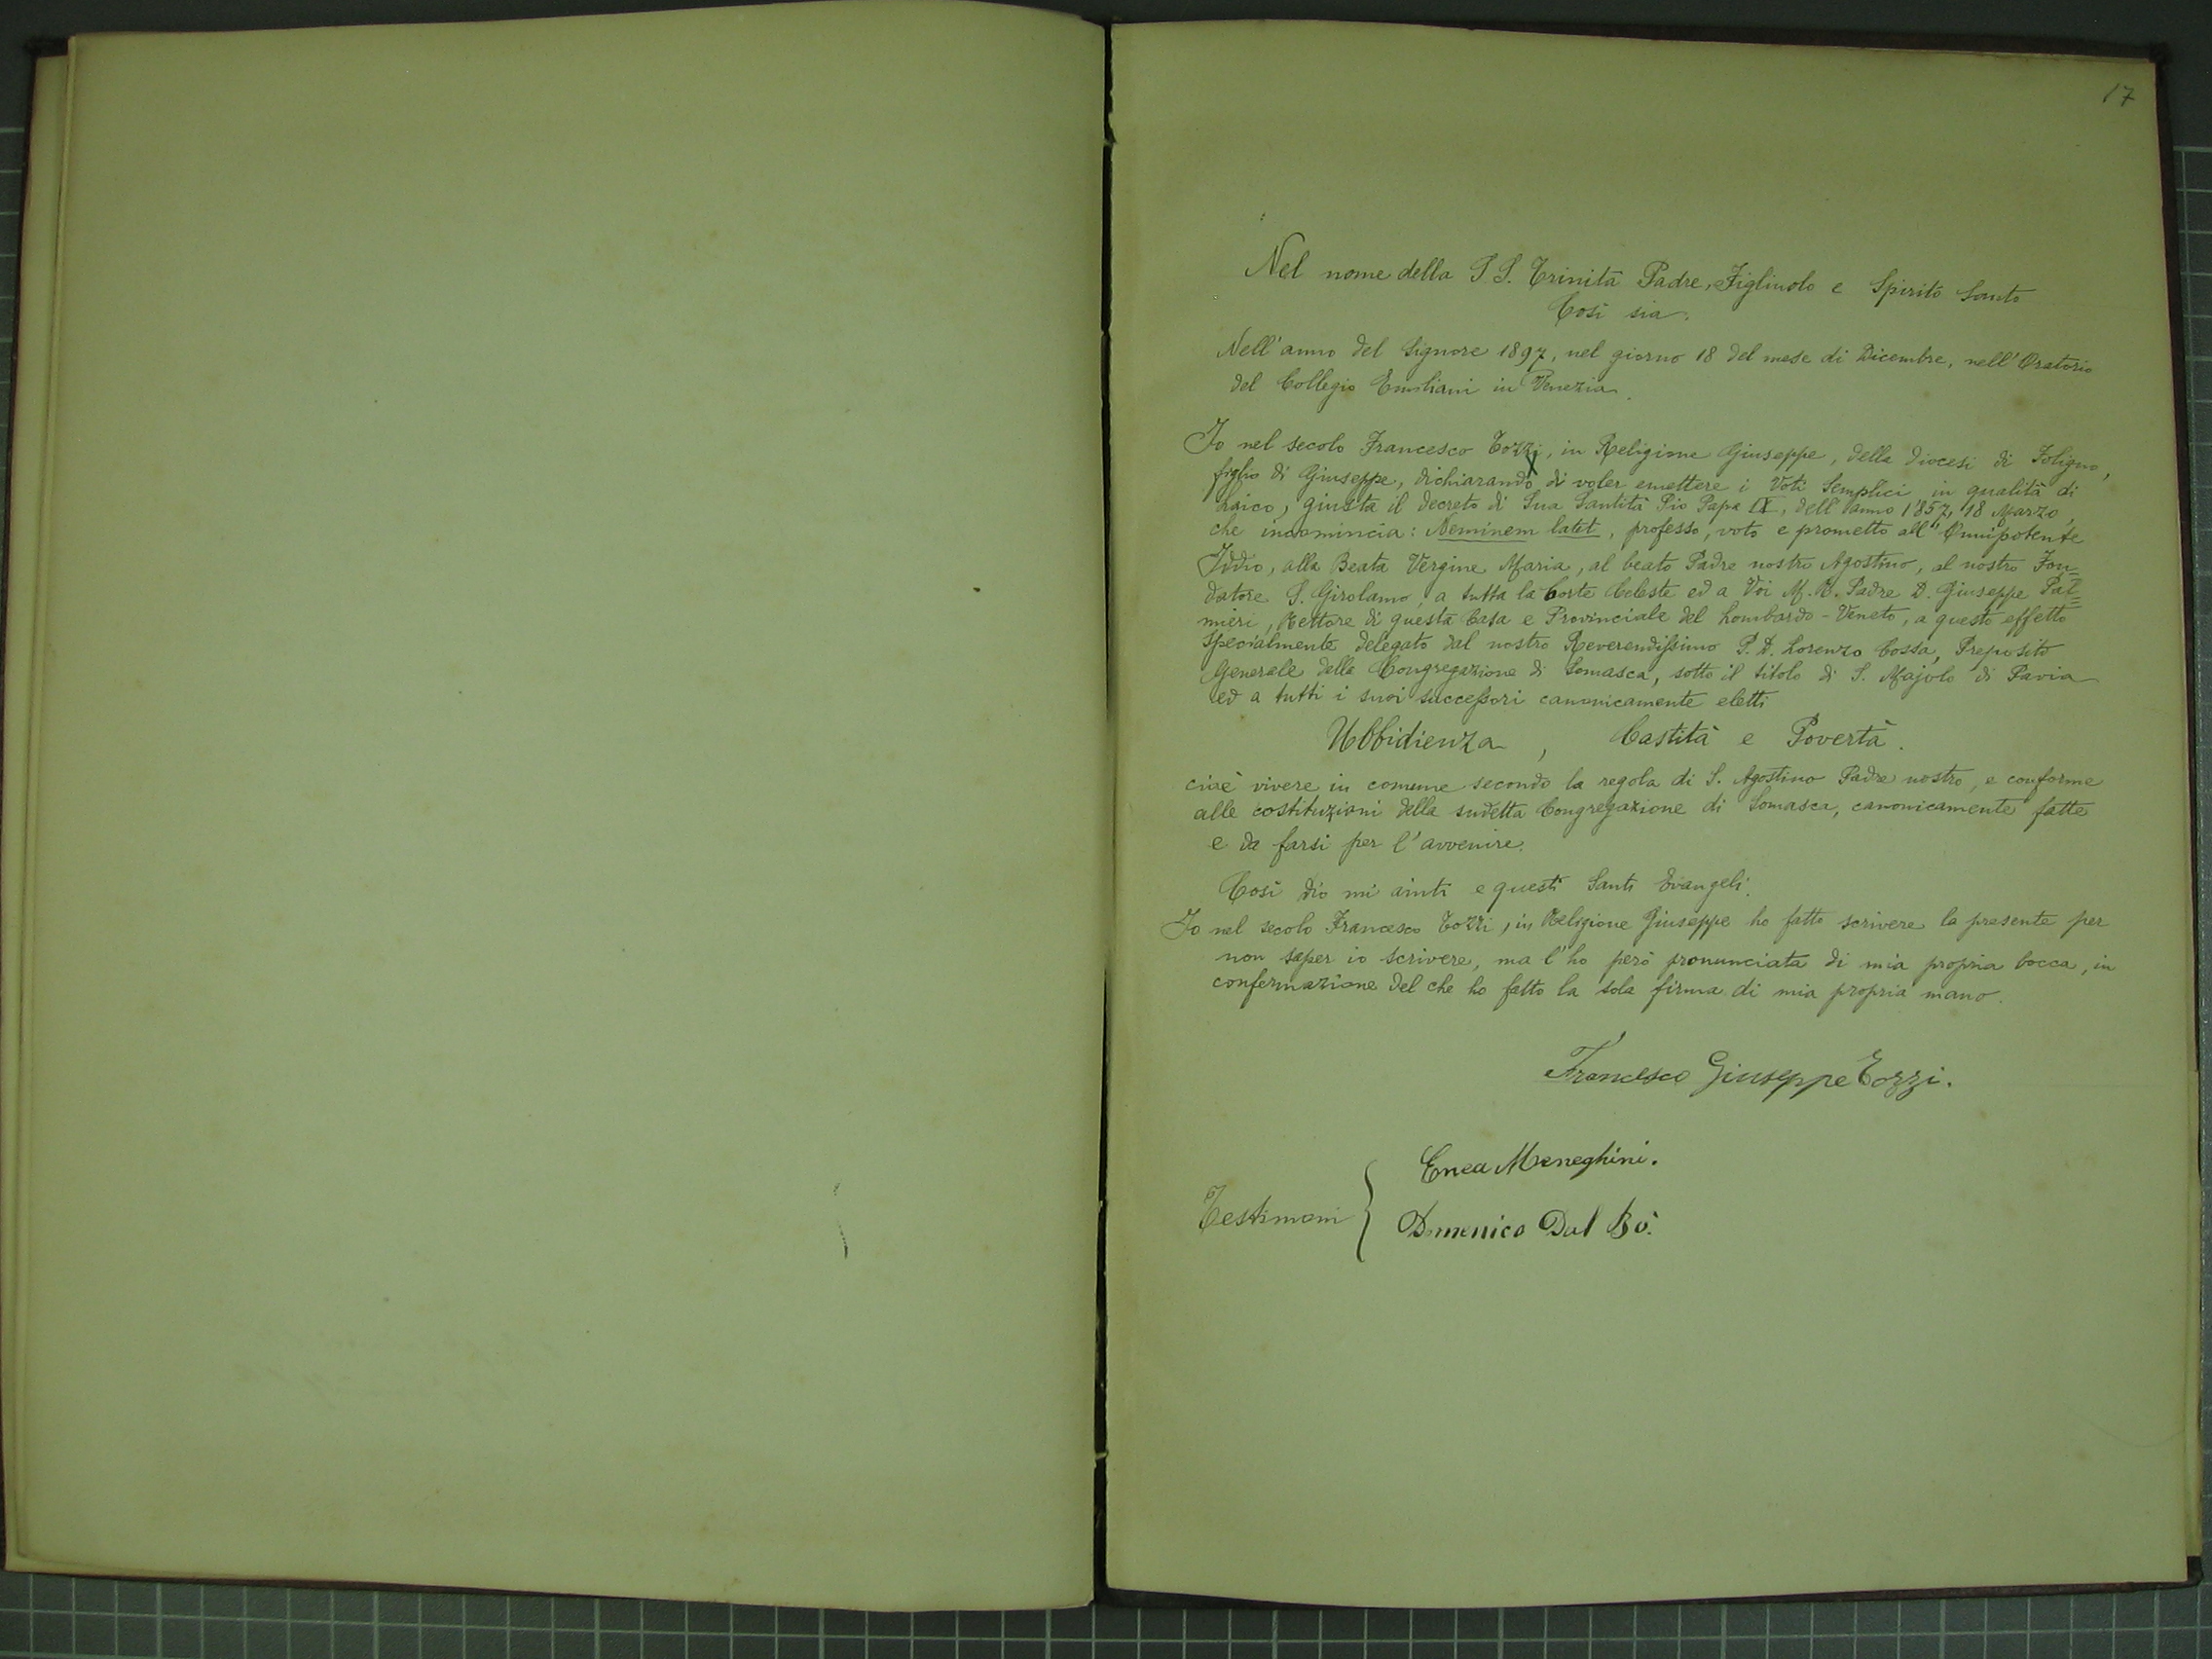 17
Nel nome della S.S. Trinità Padre, Figliuolo e Spirito Santo
Così sia.
Nell'anno del Signore 1897, nel giorno 18 del mese di Dicembre, nell'Oratorio
del Collegio Emiliani in Venezia.
Io nel secolo Francesco Tozzi, in Religione Giuseppe, della diocesi di Foligno,
figlio di Giuseppe, dichiarando di voler emettere i Voti Semplici in qualità di
Laico, giusta il decreto di Sua Santità Pio Papa IX, dell'anno 1857, 18 Marzo,
che incomincia: Neminem latet, professo, voto e prometto all'Onnipotente
Iddio, alla Beata Vergine Maria, al beato Padre nostro Agostino, al nostro Fon=
datore S. Girolamo, a tutta la Corte Celeste ed a Voi M. R. Padre D. Giuseppe Pal=
mieri, Rettore di questa Casa e Provinciale del Lombardo-Veneto, a questo effetto
specialmente delegato dal nostro Reverendissimo P. D. Lorenzo Cossa, Preposito
Generale della Congregazione di Somasca, sotto il titolo di S. Majolo di Pavia
ed a tutti i suoi successori canonicamente eletti
Ubbidienza, Castità e Povertà.
cioè vivere in comune secondo la regola di S. Agostino Padre nostro, e conforme
alle costituzioni della sudetta Congregazione di Somasca, canonicamente fatte
e da farsi per l'avvenire.
Così Dio mi aiuti e questi Santi Evangeli.
Io nel secolo Francesco Tozzi, in Religione Giuseppe ho fatto scrivere la presente per
non saper io scrivere, ma l'ho però pronunciata di mia propria bocca, in
confermazione del che ho fatto la sola firma di mia propria mano.
Francesco Giuseppe Tozzi.
Enea Meneghini.
Testimoni
Domenico Dal Bò.